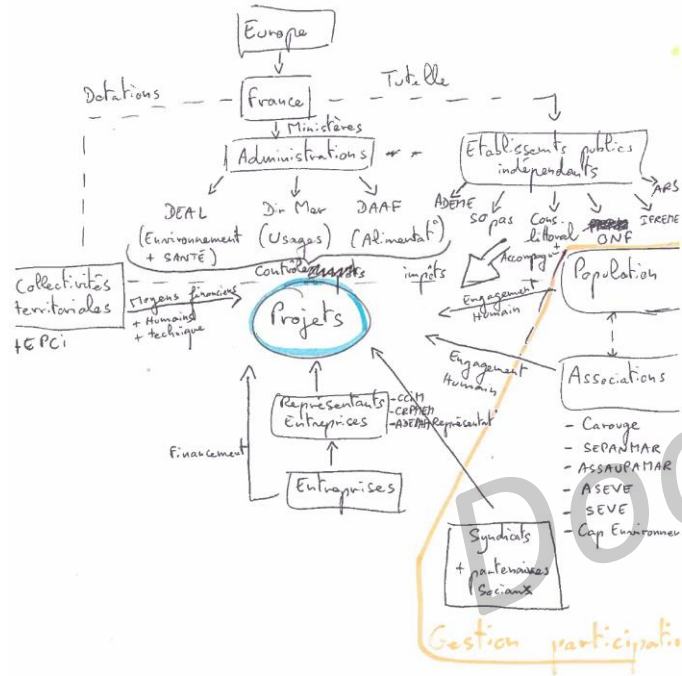 Europe
Dotations
France
Tutelle
Ministères
Administrations
Etablissemts publics
indépendants
DEAL
(Environnement
+ SANTÉ)
Dir Mer
(Usages)
DAAF
(Alimentat°)
ADEME
so pas
Cons.
littoral
ONF
IFREME
ARS
+
Accompagn
Contrôle
impôts
Collectivités
territoriales
+EPCi
Moyens financiers
+ Humains
+ technique
Projets
Engagement
Humain
Population
Engagement
Humain
Associations
- Carouge
- SEPANMAR
- ASSAUPAMAR
- ASEVE
- SEVE
- Cap Environnem
Représentants
Entreprises
- CCIM
- CRPMEM
- ADEPAM
Représentat°
Financement
Entreprises
Syndicats
+ partenaires
Sociaux
Gestion participati
Doc